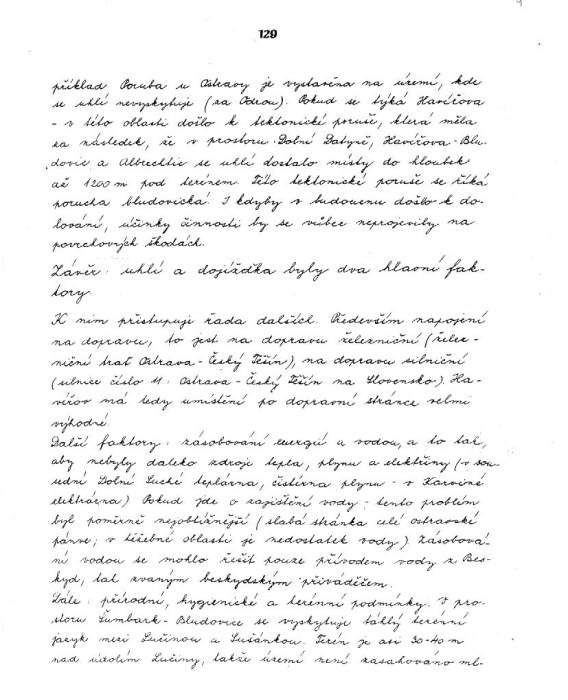 129
příklad Poruba u Ostravy je vystavěna na území, kde
se uhlí nevyskytuje (za Odrou). Pokud se týká Havířova
- v této oblasti došlo k tektonické poruše, která měla
za následek, že v prostoru Dolní Datyně, Havířova-Blu-
dovic a Albrechtic se uhlí dostalo místy do hloubek
až 1200 m pod terénem. Této tektonické poruše se říká
porucha bludovická. I kdyby v budoucnu došlo k do-
lování, účinky činnosti by se vůbec neprojevily na
povrchových škodách.
Závěr: uhlí a dojížďka byly dva hlavní fak-
tory.
K nim přistupuje řada dalších. Především napojení
na dopravu, to jest na dopravu železniční (želez-
niční trať Ostrava-Český Těšín), na dopravu silniční
(silnice číslo 11: Ostrava-Český Těšín na Slovensko). Ha-
vířov má tedy umístění po dopravní stránce velmi
výhodné.
Další faktory: zásobování energií a vodou, a to tak,
aby nebyly daleko zdroje tepla, plynu a elektřiny (v sou-
sední Dolní Suché teplárna, čistírna plynu - v Karviné
elektrárna) Pokud jde o zajištění vody: tento problém
byl poměrně nejobtížnější (slabá stránka celé ostravské
pánve; v těžebné oblasti je nedostatek vody) Zásobová-
ní vodou se mohlo řešit pouze přívodem vody z Bes-
kyd, tak zvaným beskydským přivaděčem.
Dále: přírodní, hygienické a terénní podmínky. V pro-
storu Šumbark-Bludovice se vyskytuje táhlý terénní
jazyk mezi Lučinou a Sušankou. Terén je asi 30-40 m
nad údolím Lučiny, takže území není zasahováno ml-